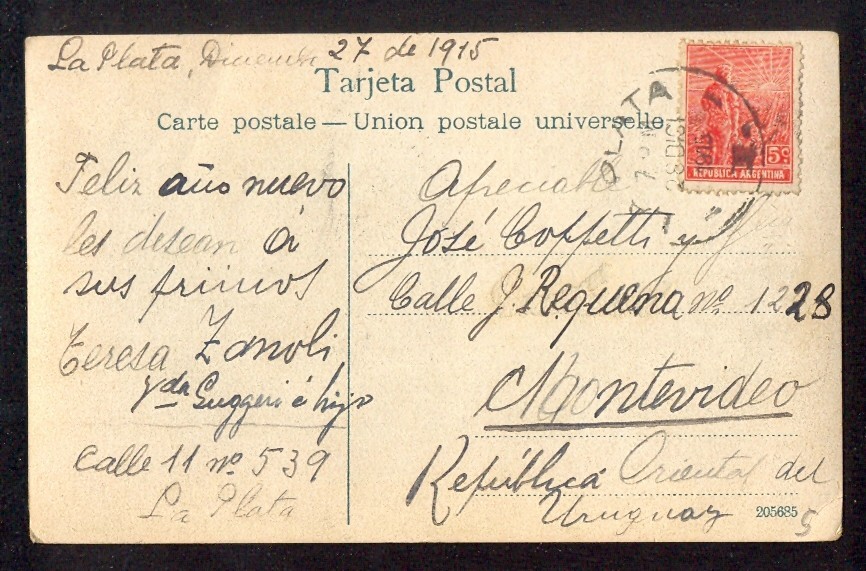 La Plata, Diciembre 27 de 1915
Tarjeta Postal
Carte postale — Union postale universelle.
PLATA
28 DIC
5c
REPUBLICA ARGENTINA
Feliz año nuevo
les desean á
sus primos
Teresa Zanoli
Vda Suggeri é hijo
Calle 11 nº 539
La Plata
Apreciable
José Coffetti y
Calle J. Requena nº 1228
Montevideo
República Oriental del
Uruguay
205685
5